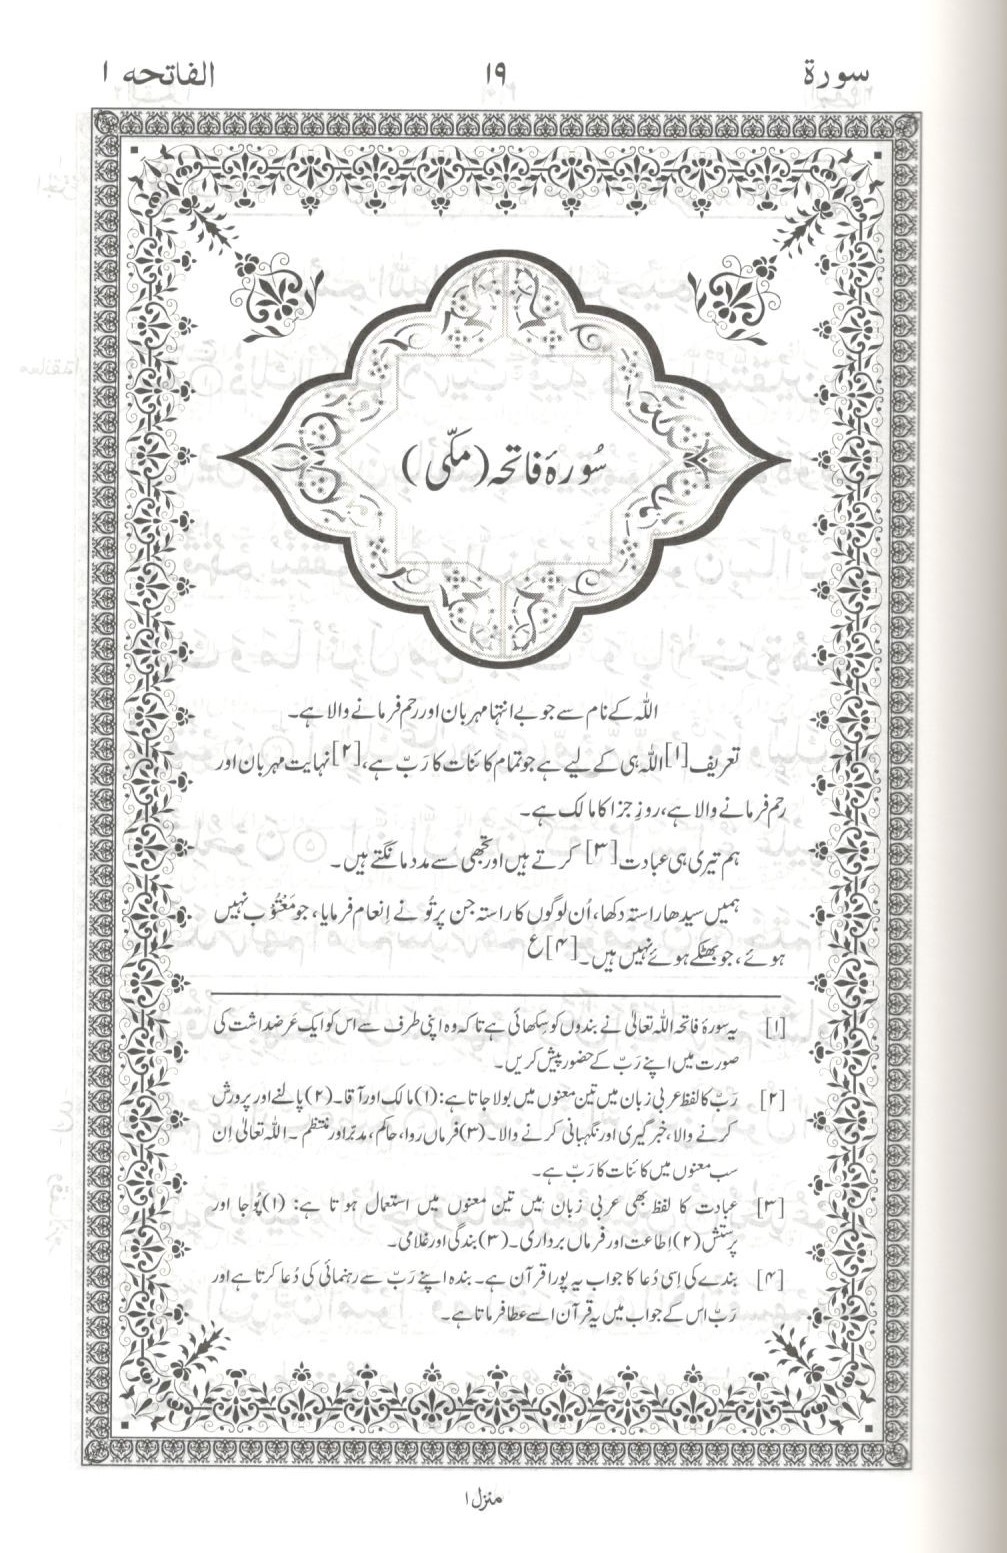 سورۃ ۱۹ الفاتحہ ۱
سُورۂ فاتحہ (مکّی)
اللہ کے نام سے جو بے انتہا مہربان اور رحم فرمانے والا ہے۔
تعریف[۱] اللہ ہی کے لیے ہے جو تمام کائنات کا رَبّ ہے،[۲] نہایت مہربان اور
رحم فرمانے والا ہے، روزِ جزا کا مالک ہے۔
ہم تیری ہی عبادت[۳] کرتے ہیں اور تجھی سے مدد مانگتے ہیں۔
ہمیں سیدھا راستہ دکھا، اُن لوگوں کا راستہ جن پر تُو نے اِنعام فرمایا، جو مَعْتُوب نہیں
ہوئے، جو بھٹکے ہوئے نہیں ہیں۔[۴] ع
[۱] یہ سورۂ فاتحہ اللہ تعالیٰ نے بندوں کو سِکھائی ہے تاکہ وہ اپنی طرف سے اس کو ایک عَرضداشت کی
صورت میں اپنے رَبّ کے حضور پیش کریں۔
[۲] رَبّ کا لفظ عربی زبان میں تین معنوں میں بولا جاتا ہے: (۱) مالک اور آقا۔ (۲) پالنے اور پرورش
کرنے والا، خبر گیری اور نگہبانی کرنے والا۔ (۳) فرماں روا، حاکم، مدبّر اور منتظم۔ اللہ تعالیٰ اِن
سب معنوں میں کائنات کا رَبّ ہے۔
[۳] عبادت کا لفظ بھی عربی زبان میں تین معنوں میں استعمال ہوتا ہے: (۱) پُوجا اور
پرستش (۲) اِطاعت اور فرماں برداری۔ (۳) بندگی اور غلامی۔
[۴] بندے کی اِسی دُعا کا جواب یہ پورا قرآن ہے۔ بندہ اپنے رَبّ سے رہنمائی کی دُعا کرتا ہے اور
رَبّ اس کے جواب میں یہ قرآن اسے عطا فرماتا ہے۔
منزل ۱